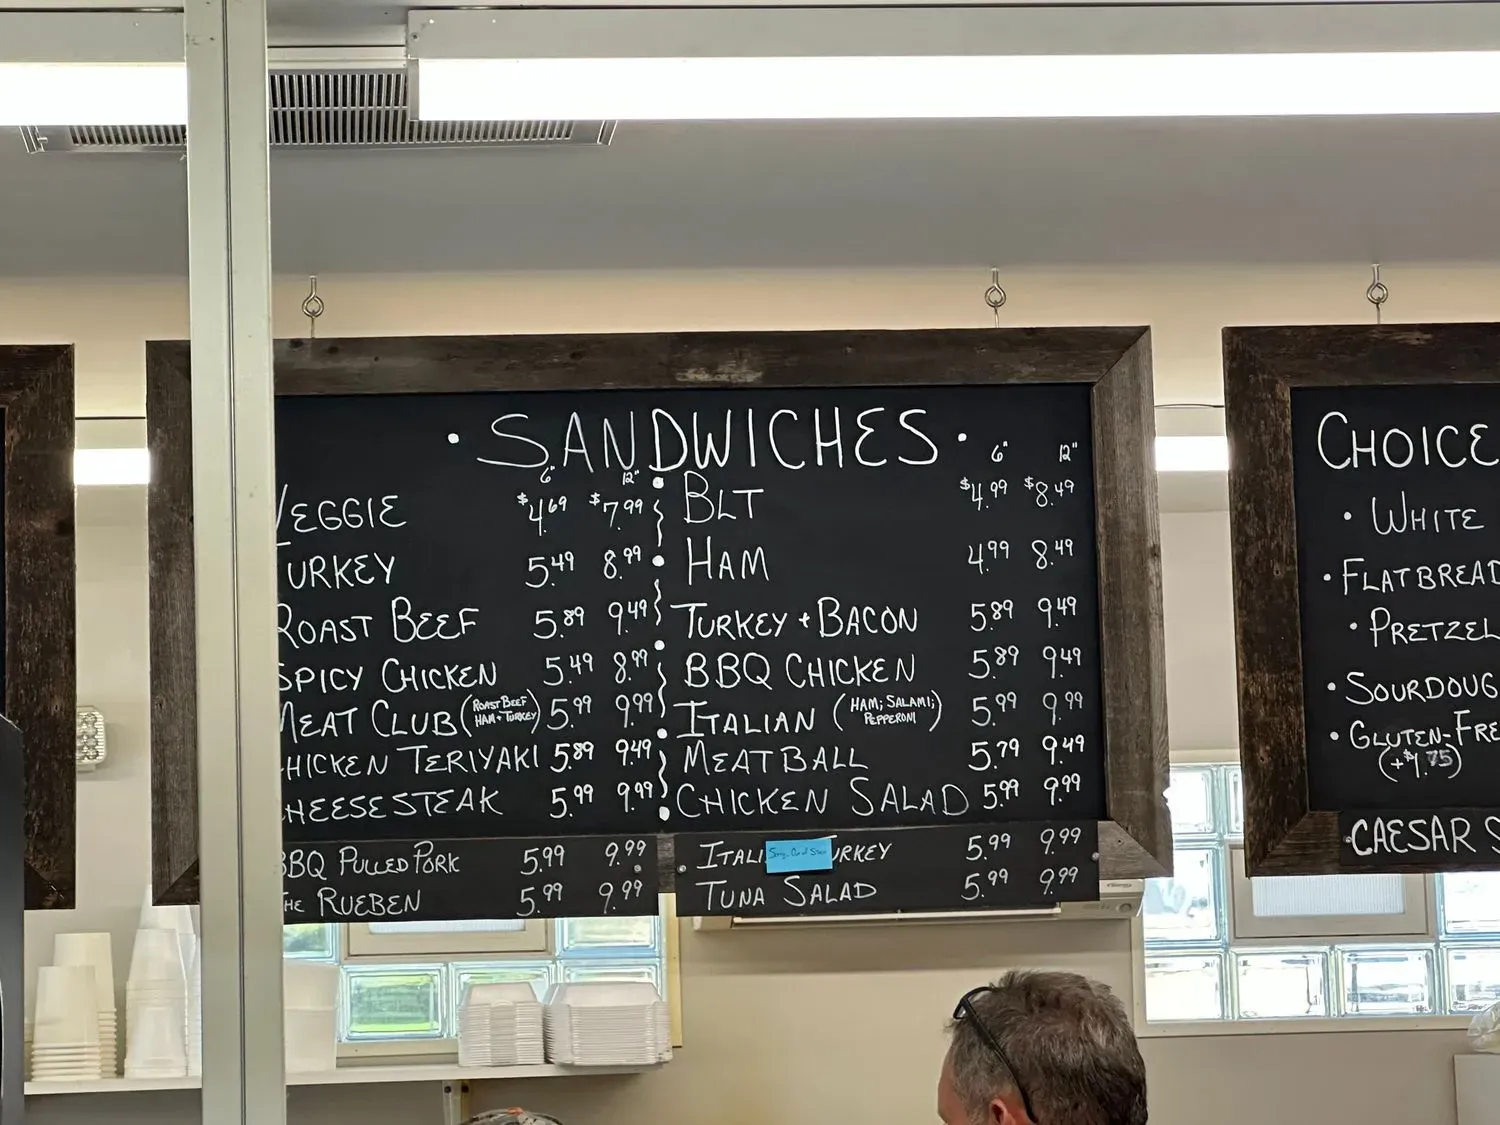 · SANDWICHES ·
6" 12"
VEGGIE $4.69 $7.99
URKEY 5.49 8.99
ROAST BEEF 5.89 9.49
SPICY CHICKEN 5.49 8.99
MEAT CLUB (ROAST BEEF HAM + TURKEY) 5.99 9.99
HICKEN TERIYAKI 5.89 9.49
HEESESTEAK 5.99 9.99
BBQ PULLED PORK 5.99 9.99
HE RUEBEN 5.99 9.99
6" 12"
BLT $4.99 $8.49
HAM 4.99 8.49
TURKEY + BACON 5.89 9.49
BBQ CHICKEN 5.89 9.49
ITALIAN (HAM; SALAMI; PEPPERONI) 5.99 9.99
MEATBALL 5.79 9.49
CHICKEN SALAD 5.99 9.99
ITALI Sorry- Out of Stock URKEY 5.99 9.99
TUNA SALAD 5.99 9.99
CHOICE
• WHITE
• FLATBREAD
• PRETZEL
• SOURDOUG
• GLUTEN-FRE
(+$1.75)
•CAESAR S